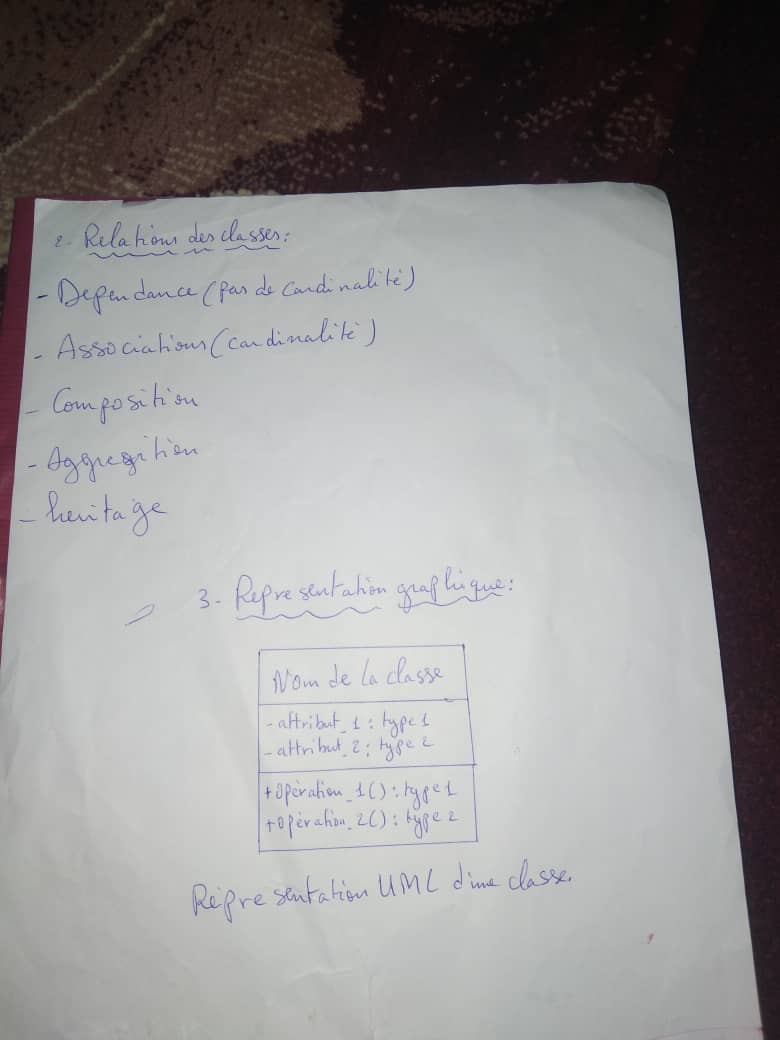 2- Relations des classes:
- Dependance (pas de cardinalité)
- Associations (cardinalité)
- Composition
- Aggregition
- heritage
3- Representation graphique:
Nom de la classe
- attribut_1 : type 1
- attribut_2 : type 2
+ Opération_1() : type 1
+ Opération_2() : type 2
Répresentation UML d'une classe.